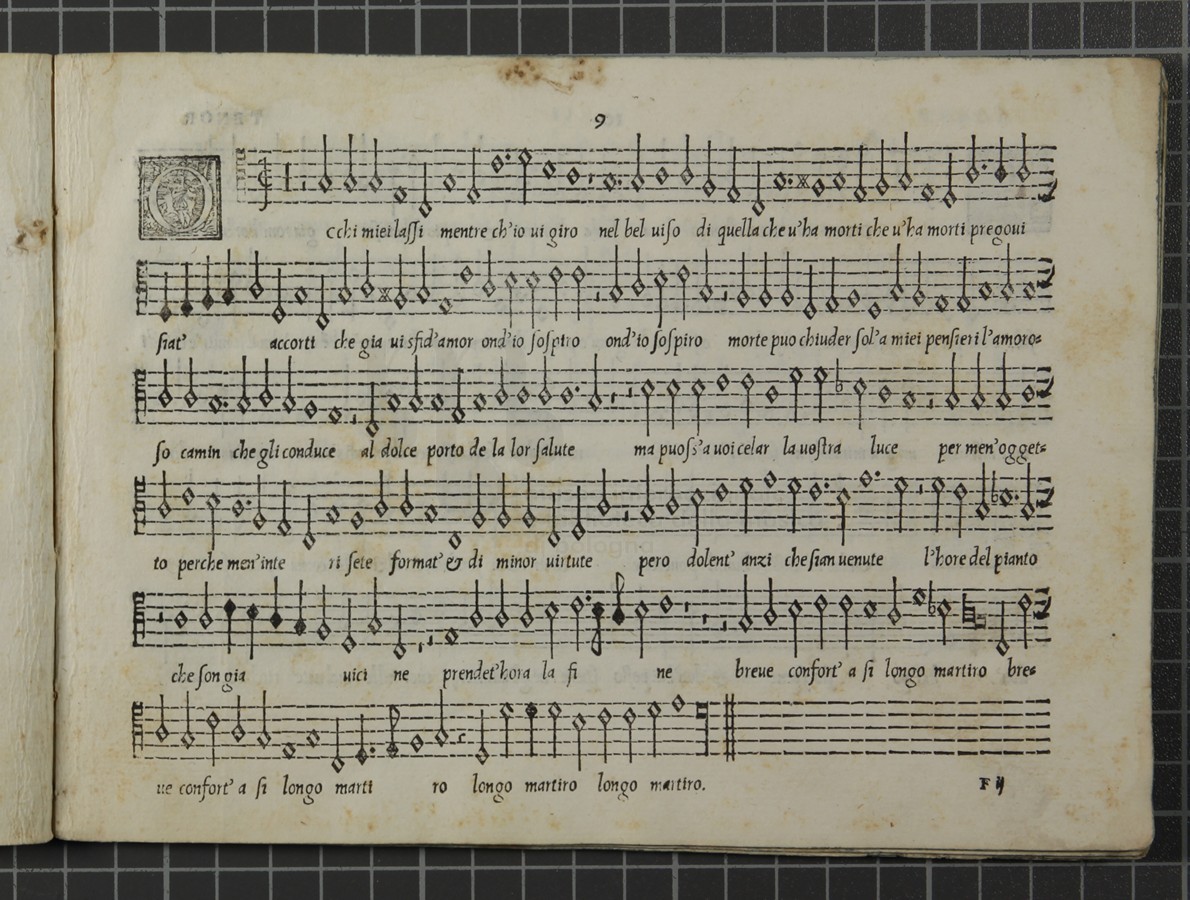 9
O cchi miei lassi mentre ch'io ui giro nel bel uiso di quella che u'ha morti che u'ha morti pregoui
siat' accorti che gia ui sfid'amor ond'io sospiro ond'io sospiro morte puo chiuder sol'a miei pensieri l'amoro=
so camin che gli conduce al dolce porto de la lor salute ma puoss'a uoi celar la uostra luce per men'ogget=
to perche men'inte ri sete format' & di minor uirtute pero dolent' anzi che sian uenute l'hore del pianto
che son gia uici ne prendet'hora la fi ne breue confort' a si longo martiro bre=
ue confort' a si longo marti ro longo martiro longo martiro.
F ij